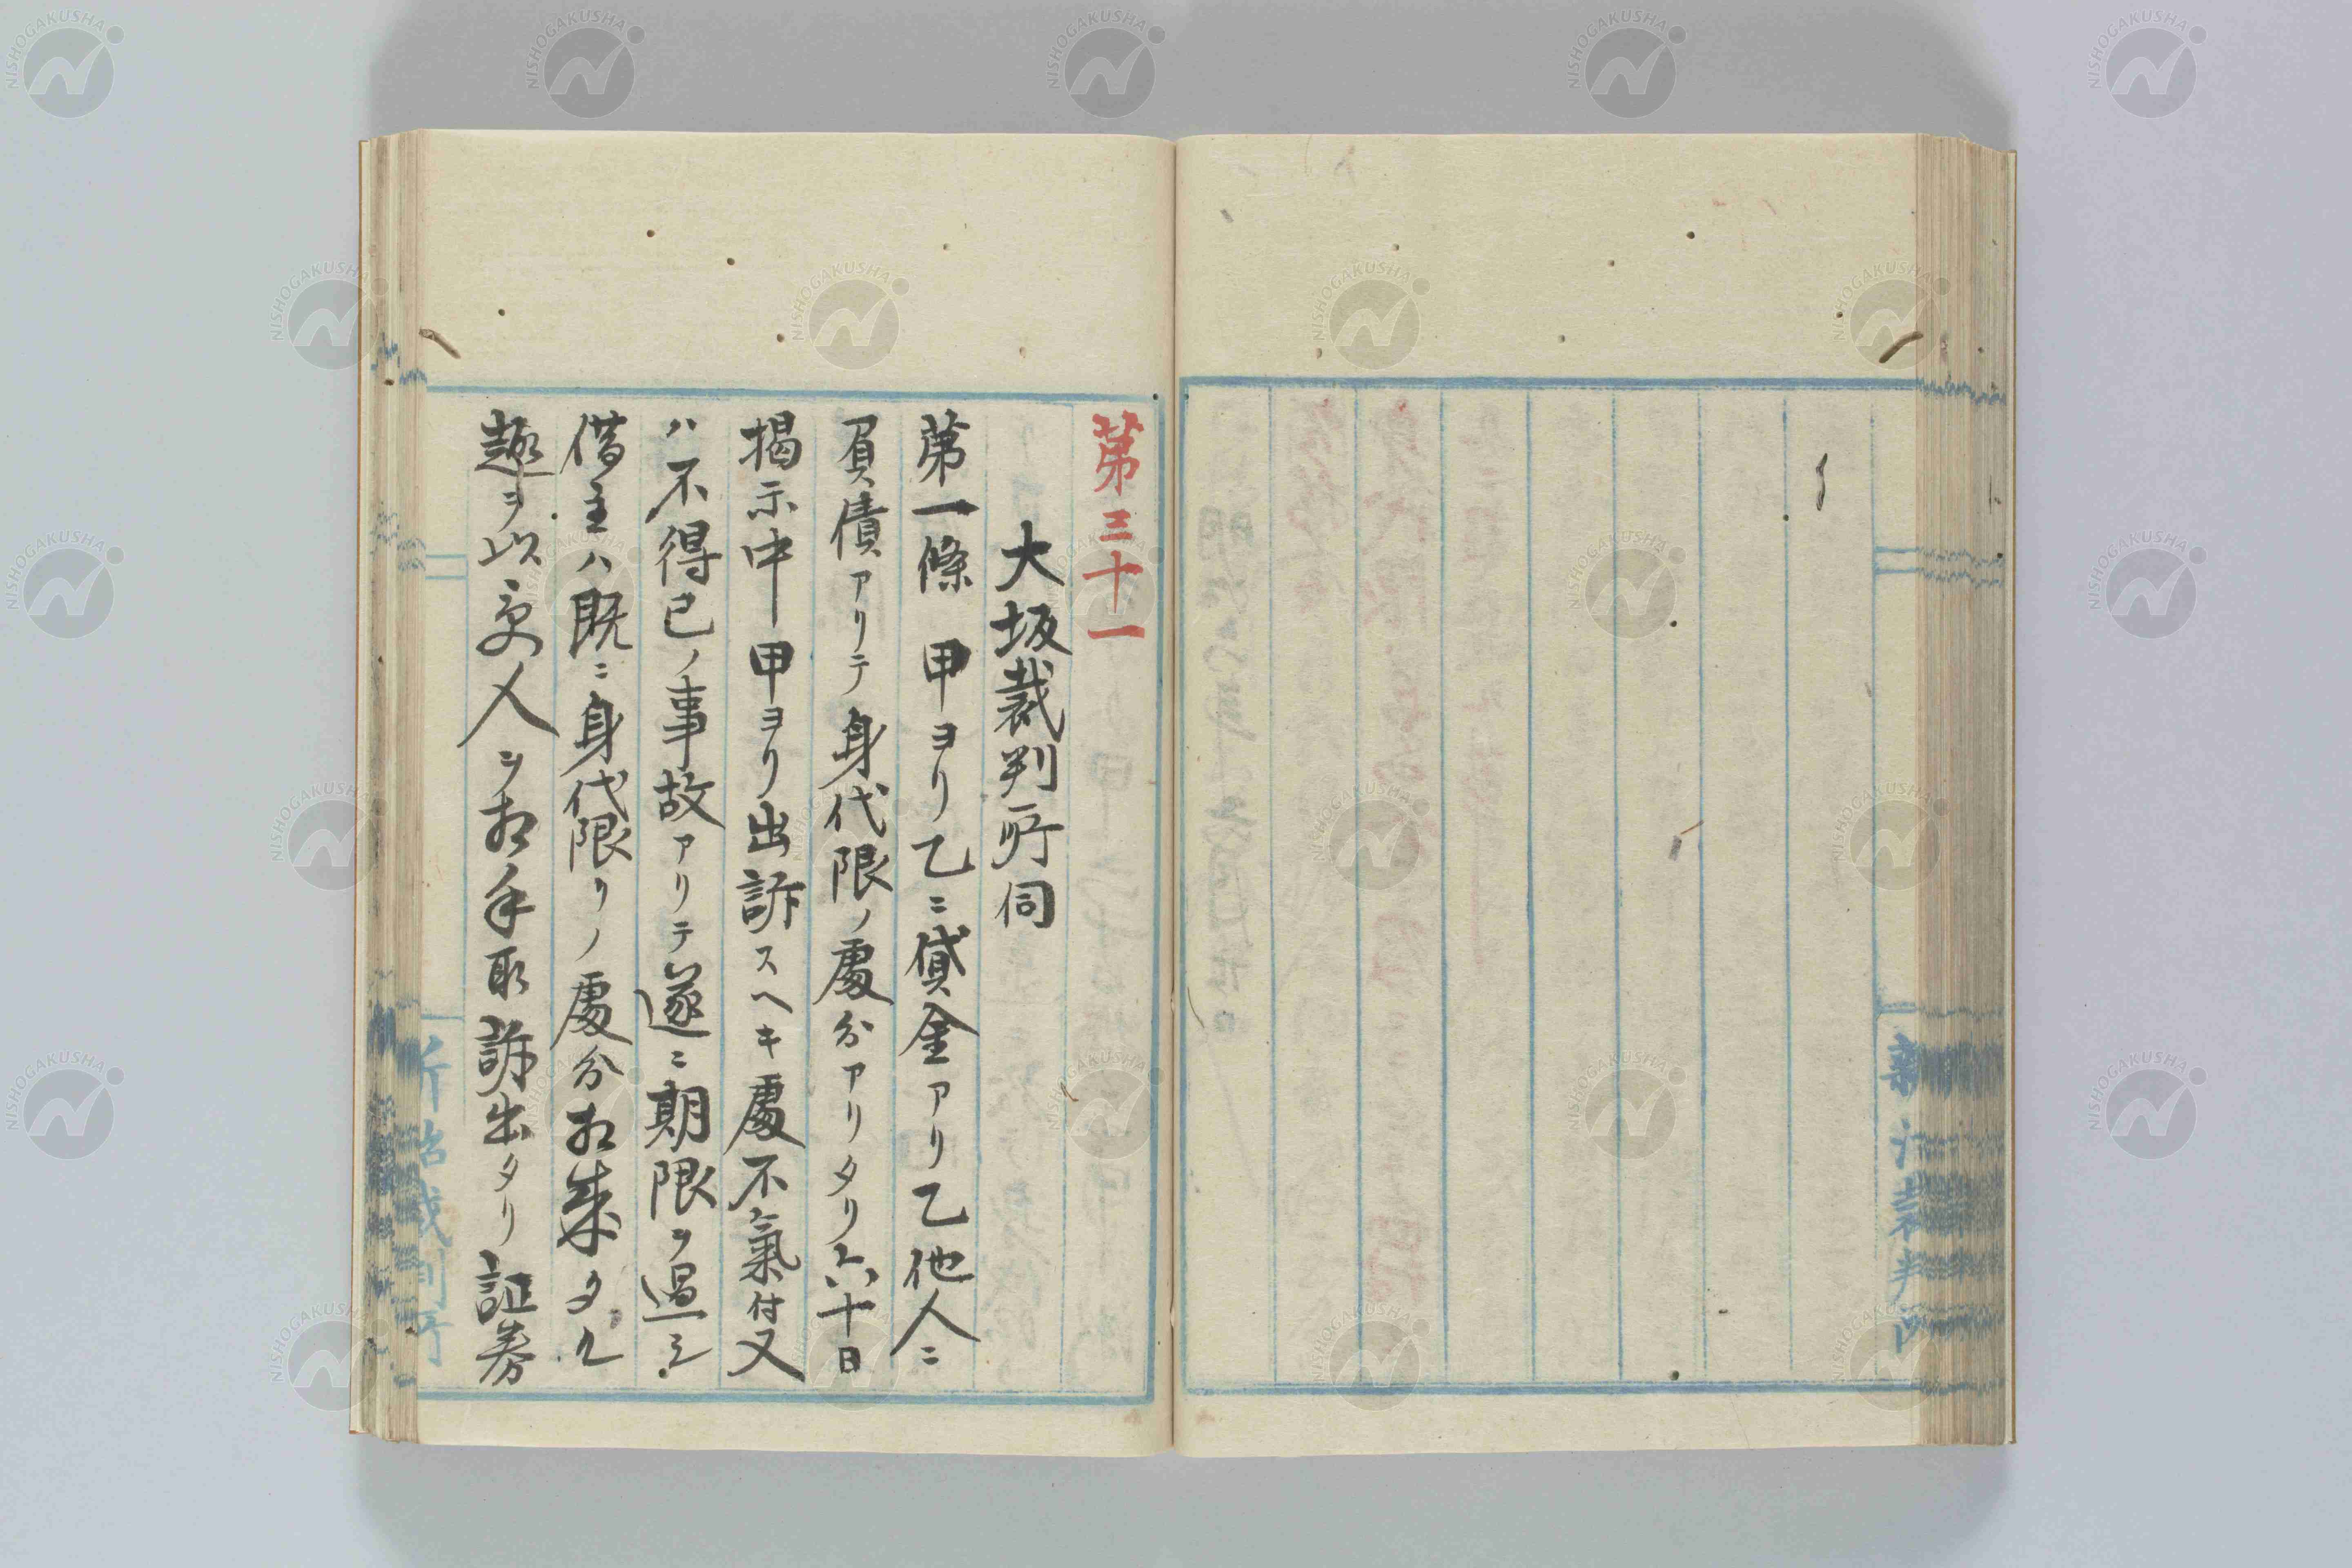 第三十一
大坂裁判所伺
第一條 甲ヨリ乙ニ貸金アリ乙他人ニ
負債アリテ身代限ノ處分アリタリ六十日
掲示中甲ヨリ出訴スヘキ處不氣付又
ハ不得已ノ事故アリテ遂ニ期限ヲ過シ
借主ハ既ニ身代限リノ處分相成タル
趣ヲ以受人ヲ相手取訴出タリ証券
新治裁判所
新治裁判所
NISHOGAKUSHA